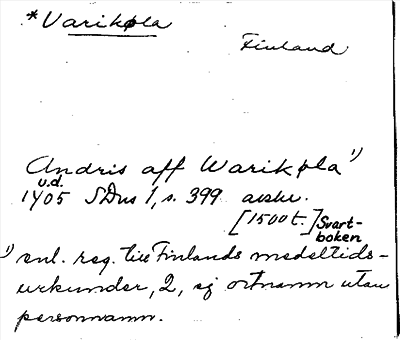 *Varikøla
Finland
Andris aff Warikøla 1)
u.d.
1405 SDns 1, s. 399 avskr.
[1500 t.] Svart-
boken
1) enl. reg. till Finlands medeltids-
urkunder, 2, ej ortnamn utan
personnamn.